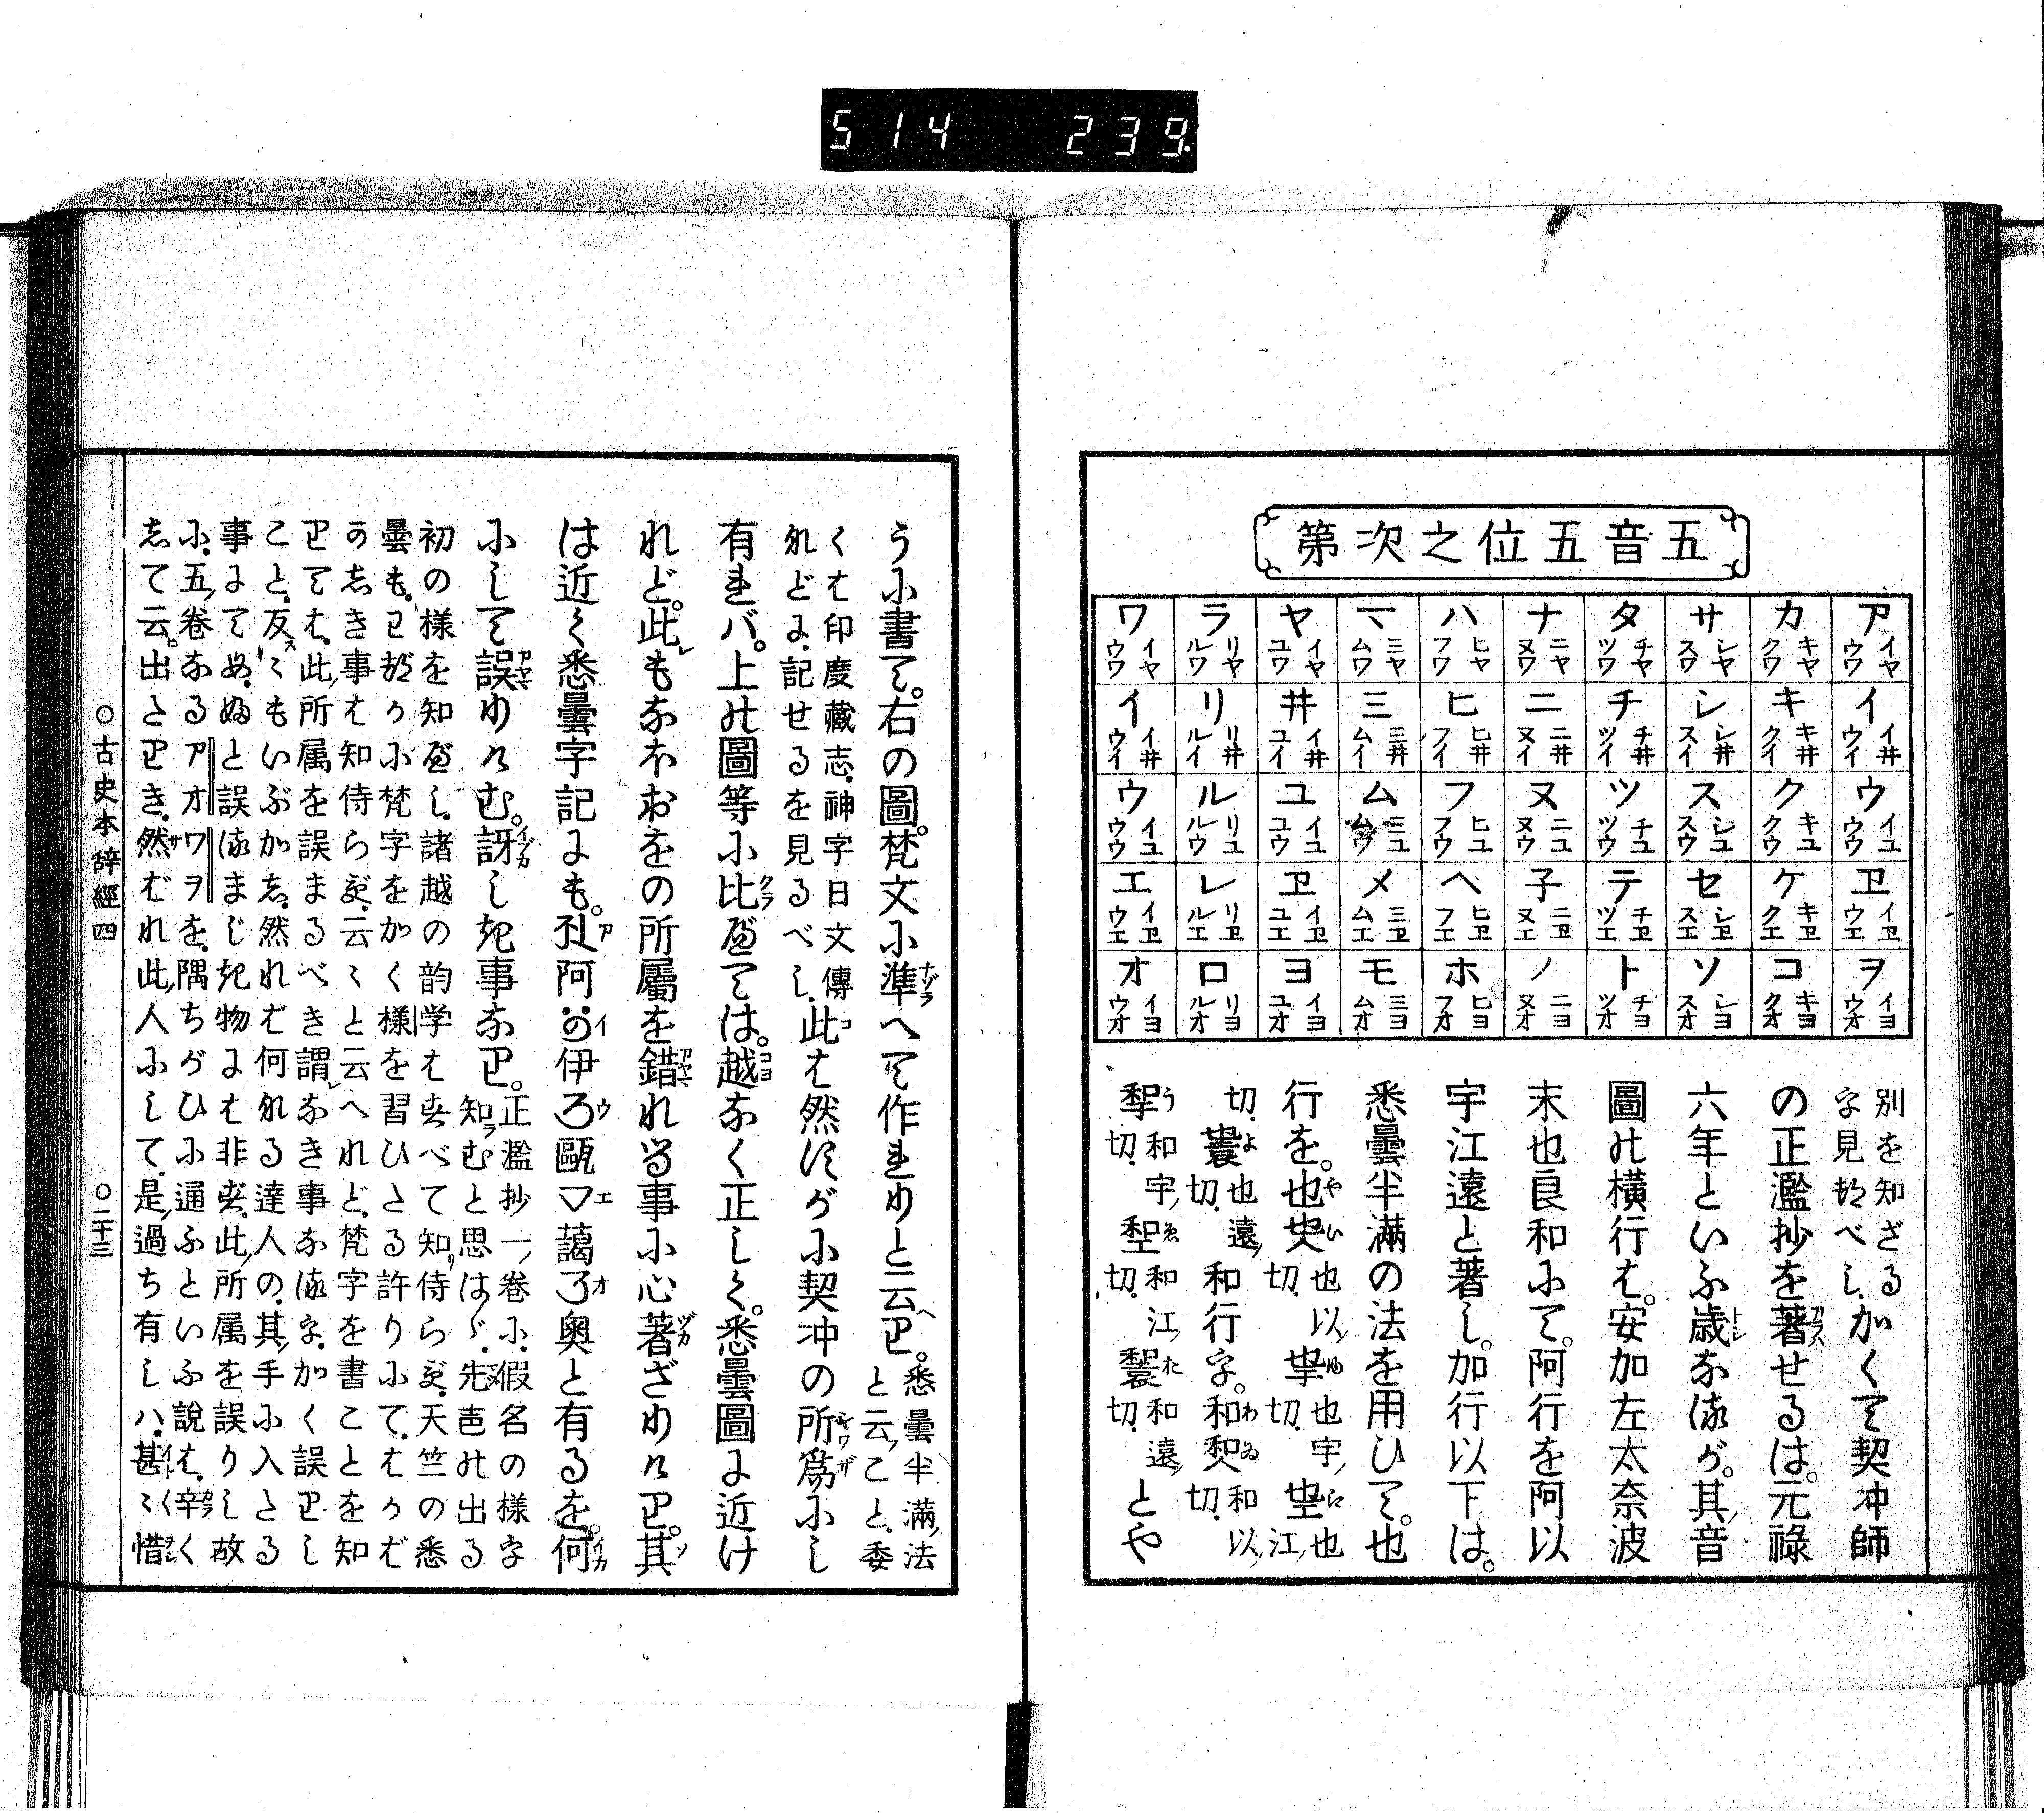 514 239.
五音五位之次第
ア カ サ タ ナ ハ マ ヤ ラ ワ
イヤ キヤ シヤ チヤ ニヤ ヒヤ ミヤ イヤ リヤ イヤ
ウワ クワ スワ ツワ ヌワ フワ ムワ ユワ ルワ ウワ
イ キ シ チ ニ ヒ ミ 井 リ イ
イ井 キ井 シ井 チ井 ニ井 ヒ井 ミ井 イ井 リ井 イ井
ウイ クイ スイ ツイ ヌイ フイ ムイ ユイ ルイ ウイ
ウ ク ス ツ ヌ フ ム ユ ル ウ
イユ キユ シユ チユ ニユ ヒユ ミユ イユ リユ イユ
ウウ クウ スウ ツウ ヌウ フウ ムウ ユウ ルウ ウウ
ヱ ケ セ テ 子 ヘ メ ヱ レ エ
イヱ キヱ シヱ チヱ ニヱ ヒヱ ミヱ イヱ リヱ イヱ
ウエ クエ スエ ツエ ヌエ フエ ムエ ユエ ルエ ウエ
ヲ コ ソ ト ノ ホ モ ヨ ロ オ
イヨ キヨ シヨ チヨ ニヨ ヒヨ ミヨ イヨ リヨ イヨ
ウオ クオ スオ ツオ ヌオ フオ ムオ ユオ ルオ ウオ
別を知ざる
字見都べし、かくて契冲師
の正濫抄を著せるは。元祿
六年といふ歳なるが。其ノ音
圖の横行は。安加左太奈波
末也良和にて。阿行を阿以
宇江遠と著し。加行以下は。
悉曇半滿の法を用ひて。也
行を。也 也以ノ切、 也宇ノ切、 也江ノ
切、 也遠ノ切、和行字。和 和以ノ切、
和宇ノ切、 和江ノ切、 和遠ノ切、とや
う小書て。右の圖。梵文小準へて作れりと云へり。悉曇半滿ノ法と云フこと、委
くは印度藏志、神字日文傳
れどに、記せるを見るべし、此は然るが小契冲の所爲小し
有れバ。上の圖等小比べては。越なく正しく。悉曇圖に近け
れど。此レもなほおをの所屬を錯れる事小心著ざりけり。其
は近く悉曇字記にも。阿伊甌藹奥と有るを。何
小して誤りけむ。訝しき事なり。正濫抄一ノ卷小、假名の様字
知むと思はゞ、先色の出る
初の様を知べし、諸越の韵学はすべて知り侍らず、天竺の悉
曇も、わづか小梵字をかく様を習ひたる許り小て、はかば
かしき事は知侍らず、云々と云へれど、梵字を書ことを知
りては、此ノ所属を誤まるべき謂レなき事なるを、かく誤りし
こと、反ス〴〵もいぶかし、然れば何れる達人の、其ノ手小入たる
事にても、ぬと誤るまじき物には非ず、此ノ所属を誤りし故
小、五ノ卷なるアオワヲを、隅ちがひ小通ふといふ說は、辛く
して云ヒ出たりき、然ばれ此ノ人小して、是ノ過ち有しハ、甚〻惜
○古史本辭經四 ○二十三